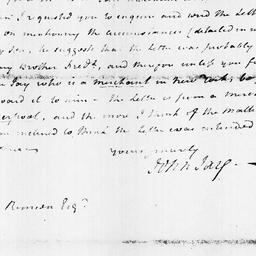 I requested you to enquire and send the Lette
on mentioning the circumstances (detailed in m
he suggests that the Letter was probably
my Brother Fredk, and therefore unless you fi
Jay who is a merchant in New York, be
ward it to him – the Letter is from a Merch
erpool, and the more I think of the Matte
inclined to think the Letter was intended
yours sincerely
John Jay –
Remsen Esqr